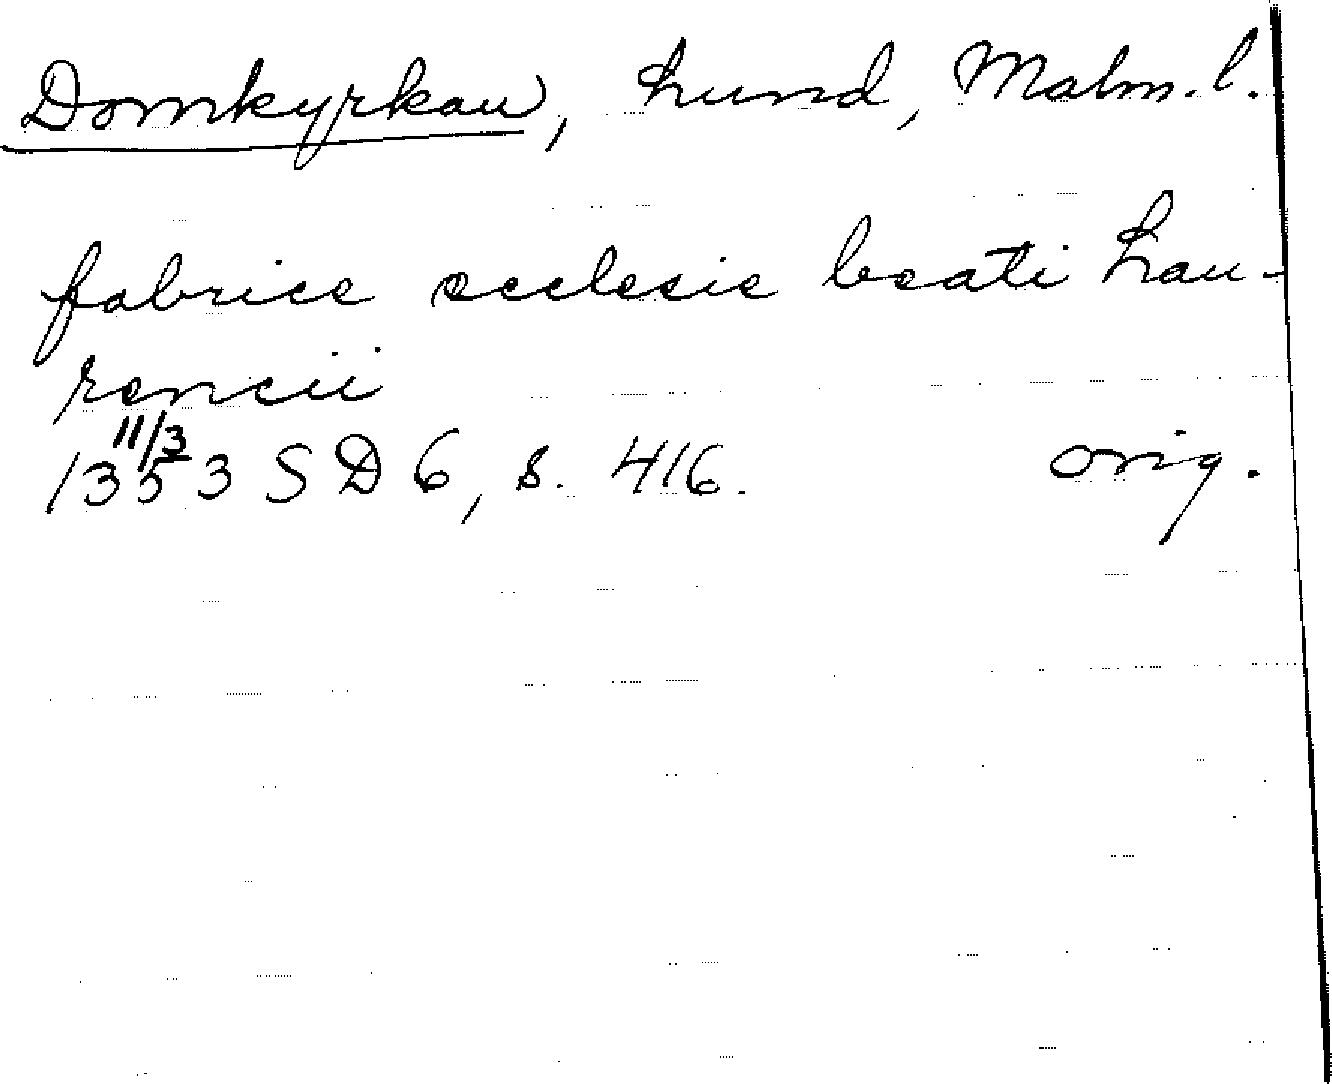 Domkyrkan, Lund, Malm. l.
fabrice ecclesie beati Lau-
rencii
11/3
1353 SD 6, s. 416. orig.